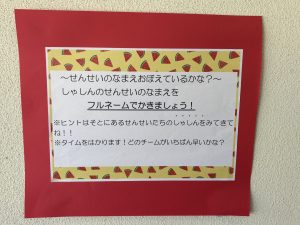 ～せんせいのなまえおぼえているかな？～
しゃしんのせんせいのなまえを
フルネームでかきましょう！
※ヒントはそとにあるせんせいたちのしゃしんをみてきて
ね！！
※タイムをはかります！どのチームがいちばん早いかな？